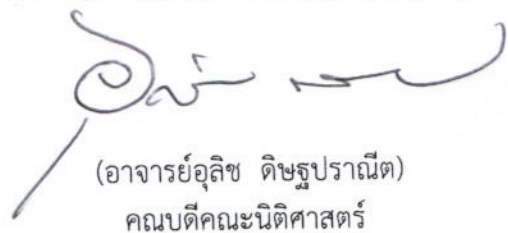 (อาจารย์อุลิช ดิษฐปราณีต)
คณบดีคณะนิติศาสตร์